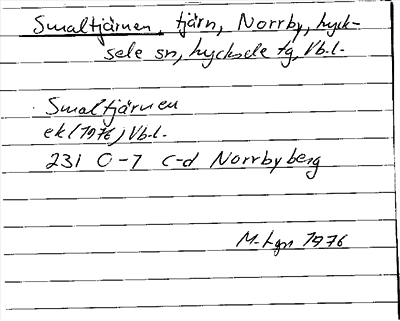 Smaltjärnen, tjärn, Norrby, Lyck-
sele sn, Lycksele tg, Vb.l.
Smaltjärnen
ek (1976) Vb.l.
231 O-7 c-d Norrbyberg
M. Lgn 1976